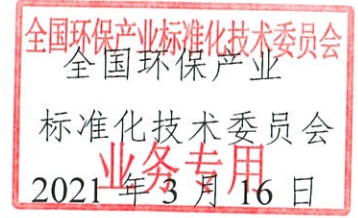 全国环保产业标准化技术委员会
全国环保产业
标准化技术委员会
业务专用
2021 年 3 月 16 日